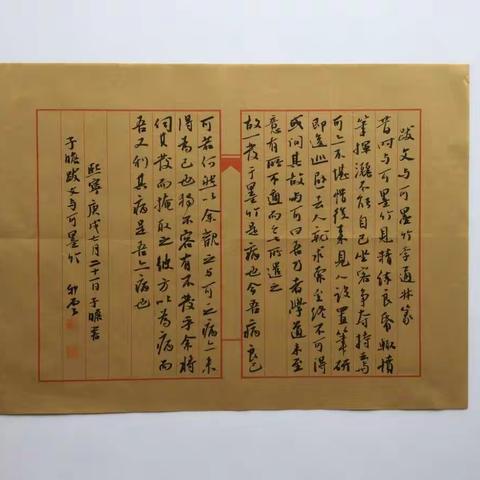 跋文与可墨竹李通叔篆
昔时与可墨竹見精缣良帋辄愤
筆揮灑不能自已坐客争夺持去与
可亦不甚惜後来見人設置筆研
即逡巡避去人就求索至终不可得
或问其故与可曰吾乃者学道未至
意有所不適而无所遣之
故一发于墨竹是病也今吾病良已
可若何然以余觀之与可之病亦未
得為已也独不容有不发乎余将
伺其发而掩取之彼方以為病而
吾又利其病是吾亦病也
熙寧庚戌七月二十一日子瞻书
子瞻跋文与可墨竹